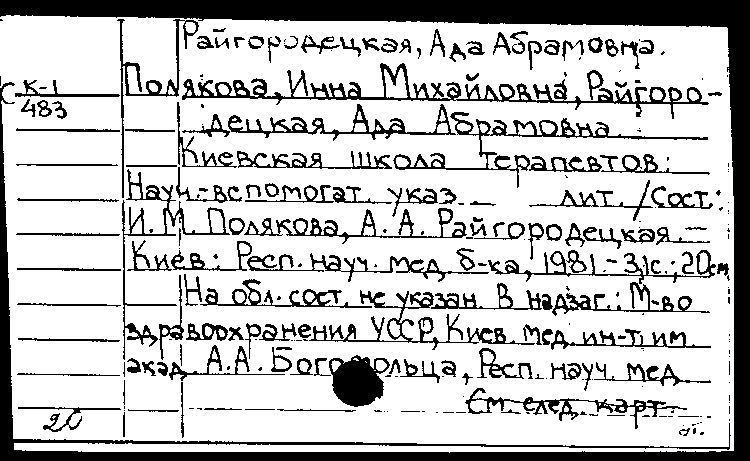 Райгородецкая, Ада Абрамовна.
С К-1
483
Полякова, Инна Михайловна, Райгоро-
децкая, Ада Абрамовна.
Киевская школа терапевтов:
Науч.-вспомогат. указ. лит. /Сост.:
И. М. Полякова, А. А. Райгородецкая. –
Киев: Респ. науч. мед. б-ка, 1981. – 31с.; 20см
На обл. сост. не указан. В надзаг.: М-во
здравоохранения УССР, Киев. мед. ин-т им.
акад. А.А. Богомольца, Респ. науч. мед.
См. след. карт.
20